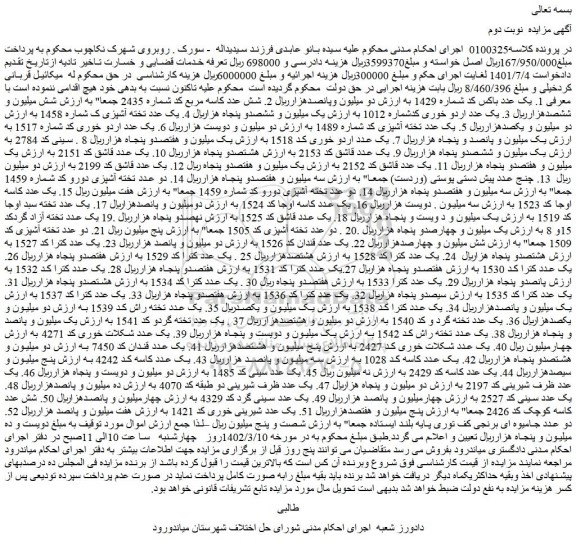 بسمه تعالی
آگهی مزایده نوبت دوم
در پرونده کلاسه 0100325 اجرای احکام مدنی محکوم علیه سیده بانو عابدی فرزند سیدیداله - سورک . روبروی شهرک نکاچوب محکوم به پرداخت
مبلغ 167/950/000ریال اصل خواسته و مبلغ 3599370ریال هزینه دادرسی و 698000 ریال تعرفه خدمات قضایی و خسارت تاخیر تادیه ازتاریخ تقدیم
دادخواست 1401/7/4 لغایت اجرای حکم و مبلغ 300000ریال هزینه اجرائیه و مبلغ 6000000ریال هزینه کارشناسی در حق محکوم له میکائیل قربانی
کردخیلی و مبلغ 8/460/396 ریال بابت هزینه اجرایی در حق دولت محکوم گردیده است محکوم علیه تاکنون نسبت به بدهی خود هیچ اقدامی ننموده است با
معرفی 1. یک عدد باکس کد شماره 1429 به ارزش دو میلیون وپانصدهزارریال 2. شش عدد کاسه مربع کد شماره 2435 جمعا" به ارزش شش میلیون و
ششصدهزارریال 3. یک عدد اردو خوری کدشماره 1012 به ارزش یک میلیون و ششصدو پنجاه هزارریال 4. یک عدد تخته آشپزی ک شماره 1458 به ارزش
دو میلیون و یکصدهزارریال 5. یک عدد تخته آشپزی کد شماره 1489 به ارزش دو میلیون و دویست هزارریال 6. یک عدد اردو خوری کد شماره 1517 به
ارزش یک میلیون و پانصد و پنجاه هزارریال 7. یک عدد اردو خوری کد 1518 به ارزش یک میلیون و هفتصدو پنجاه هزارریال 8 . سینی کد 2784 به
ارزش یک میلیون و ششصدو پنجاه هزارریال 9. یک عدد قاشق کد 2153 به ارزش هشتصدو پنجاه هزارریال 10. یک عدد قاشق کد 2151 به ارزش یک
میلیون و هفتصدو پنجاه هزارریال 11. یک عدد قاشق کد 2152 به ارزش یک میلیون و هفتصدو پنجاه ریال 12. یک عدد قاشق کد 2199 به ارزش دو میلیون
ریال 13. چنج عدد پیش دستی یوستی (وردست) جمعا" به ارزش سه میلیون و هفتصدو پنجاه هزارریال 14. دو عدد تخته آشپزی دورو کد شماره 1459
جمعا" به ارزش سه میلیون و هفتصدو پنجاه هزارریال 14. دو عدد تخته آشپزی دورو کد شماره 1459 جمعا" به ارزش هفت میلیون ریال 15. یک عدد کاسه
اوجا کد 1523 به ارزش سه میلیون . دویست هزارریال 16. یک عدد کاسه اوجا کد 1524 به ارزش دومیلیون و پانصدهزارریال 17. یک عدد تخته سید اوجا
کد 1519 به ارزش یک میلیون و د ویست و پنجاه هزارریال 18. یک عدد قاشق کد 1525 به ارزش نهصدو پنجاه هزارریال .19 یک عدد تخته آزاد گردکد
15و 8 به ارزش یک میلیون و چهارصدو پنجاه هزارریال .20 . دو عدد تخته آشپزی کد 1505 جمعا" به ارزش پنج میلیون ریال 21. دو عدد تخته آشپزی کد
1509 جمعا" به ارزش شش میلیون و چهارصدهزارریال 22. یک عدد قندان کد 1526 به ارزش دو میلیون و پانصد هزارریال 23. یک عدد کترا کد 1527 به
ارزش هشتصدو پنجاه هزارریال 24. یک عدد کترا کد 1528 به ارزش هشتصدهزارریال 25 . یک عدد کترا کد 1529 به ارزش هفتصدو پنجاه هزارریال 26.
یک عدد کترا کـد 1530 به ارزش هفتصدو پنجاه هزارریال 27.یک عدد کترا کد 1531 به ارزش هفتصدو پنجاه هزارریال 28. یک عدد کترا کد 1532 به
ارزش پانصدو پنجاه هزارریال 29. یک عدد کترا 1533 به ارزش هفتصدو پنجاه ریال 30 . یک عدد کترا کد 1534 به ارزش هشتصدو پنجاه هزارریال 31.
یک عدد کترا کد 1535 به ارزش سیصدو پنجاه هزارریال 32. یک عدد کترا کد 1536 به ارزش هفتصدو پنجاه هزاریال 33. یک عدد کترا کد 1537 به ارزش
یک میلیون و پانصدهزارریال 34. یک عدد کترا کـد 1538 به ارزش یک میلیون و یکصدریال 35. یک عدد تخته راش کـد 1539 به ارزش دو میلیون و
یکصدهزارریال 36. یک عدد تخته گرد و کد 1540 به ارزش دو میلیون و هشتصدهزارریال 37 . یک عدد تخته گردو کد 1541 به ارزش یک میلیون و پانصد
و پنجاه هزارریال 38. یک عدد تخته راش کد 1542 به ارزش یک میلیون و دویست و پنجاه هزارریال 39. یک عدد شکلات خوری کد 4271 به ارزش
چهارمیلیون ریال 40. یک عدد شکلات خوری کد 2427 به ارزش پنج میلیون و هشتصدهزارریال 41. یک عدد قندان کد 7450 به ارزش دو میلیون و
هشتصدو پنجاه هزارریال 42. یک عدد کاسه کد 1028 به ارزش سه میلیون و پانصـد هزارریال 43. یک عدد کاسه کد 4242 به ارزش پنج میلیون و
سیصدهزارریال 44. یک عدد کاسه کد 2429 به ارزش نه میلیون ریال 45. یک عدد قندان کد 1485 به ارزش دو میلیون و دویست و پنجاه هزارریال 46. یک
عدد ظرف شیرینی کد 2197 به ارزش دو میلیون و پنجاه هزارریال 47. یک عدد ظرف شیرینی دو طبقه کد 4070 به ارزش ده میلیون و پانصدهزارریال 48.
یک عدد سینی کد 2527 به ارزش چهارمیلیون و پانصدهزارریال 49. یک عدد سینی گرد کد 4329 به ارزش چهارمیلیون و پانصدهزارریال 50. شش عدد
کاسه کوچک کد 2426 جمعا" به ارزش پنج میلیون و هفتصدهزارریال 51. یک عدد شیرینی خوری کد 1421 به ارزش هفت میلیون و پانصد هزارریال 52.
دو عدد جامیوه ای برنجی کف توری پایه بلند ایستاده جمعا" به ارزش شصت و پنج میلیون ریال –لـذا جمع ارزش اموال مورد توقیف به مبلغ دویست و ده
میلیون و پنجاه هزارریال تعیین و اعلام می گردد.طبق مبلغ محکوم به در مورخه 1402/3/10روز چهارشنبه سا عت 10الی 11صبح در دفتر اجرای
احکام مدنی دادگستری میاندرود بفروش می رسد متقاضیان می توانند پنج روز قبل از برگزاری مزایده جهت اطلاعات بیشتر به دفتر اجرای احکام میاندرود
مراجعه نمایند مزایده از قیمت کارشناسی فوق شروع وبرنده آن کس است که بالاترین قیمت را قبول کرده باشد از برنده مزایده فی المجلس ده درصدبهای
پیشنهادی اخذ وبقیه حداکثریکماه دیگر دریافت خواهد شد برنده باید بقیه مبلغ رابه صورت کامل پرداخت نماید در صورت عدم پرداخت سپرده تودیعی پس از
کسر هزینه مزایده به نفع دولت ضبط خواهد شد بدیهی است تحویل مال مورد مزایده تابع تشریفات قانونی خواهد بود.
طالبی
دادورز شعبه اجرای احکام مدنی شورای حل اختلاف شهرستان میاندورود